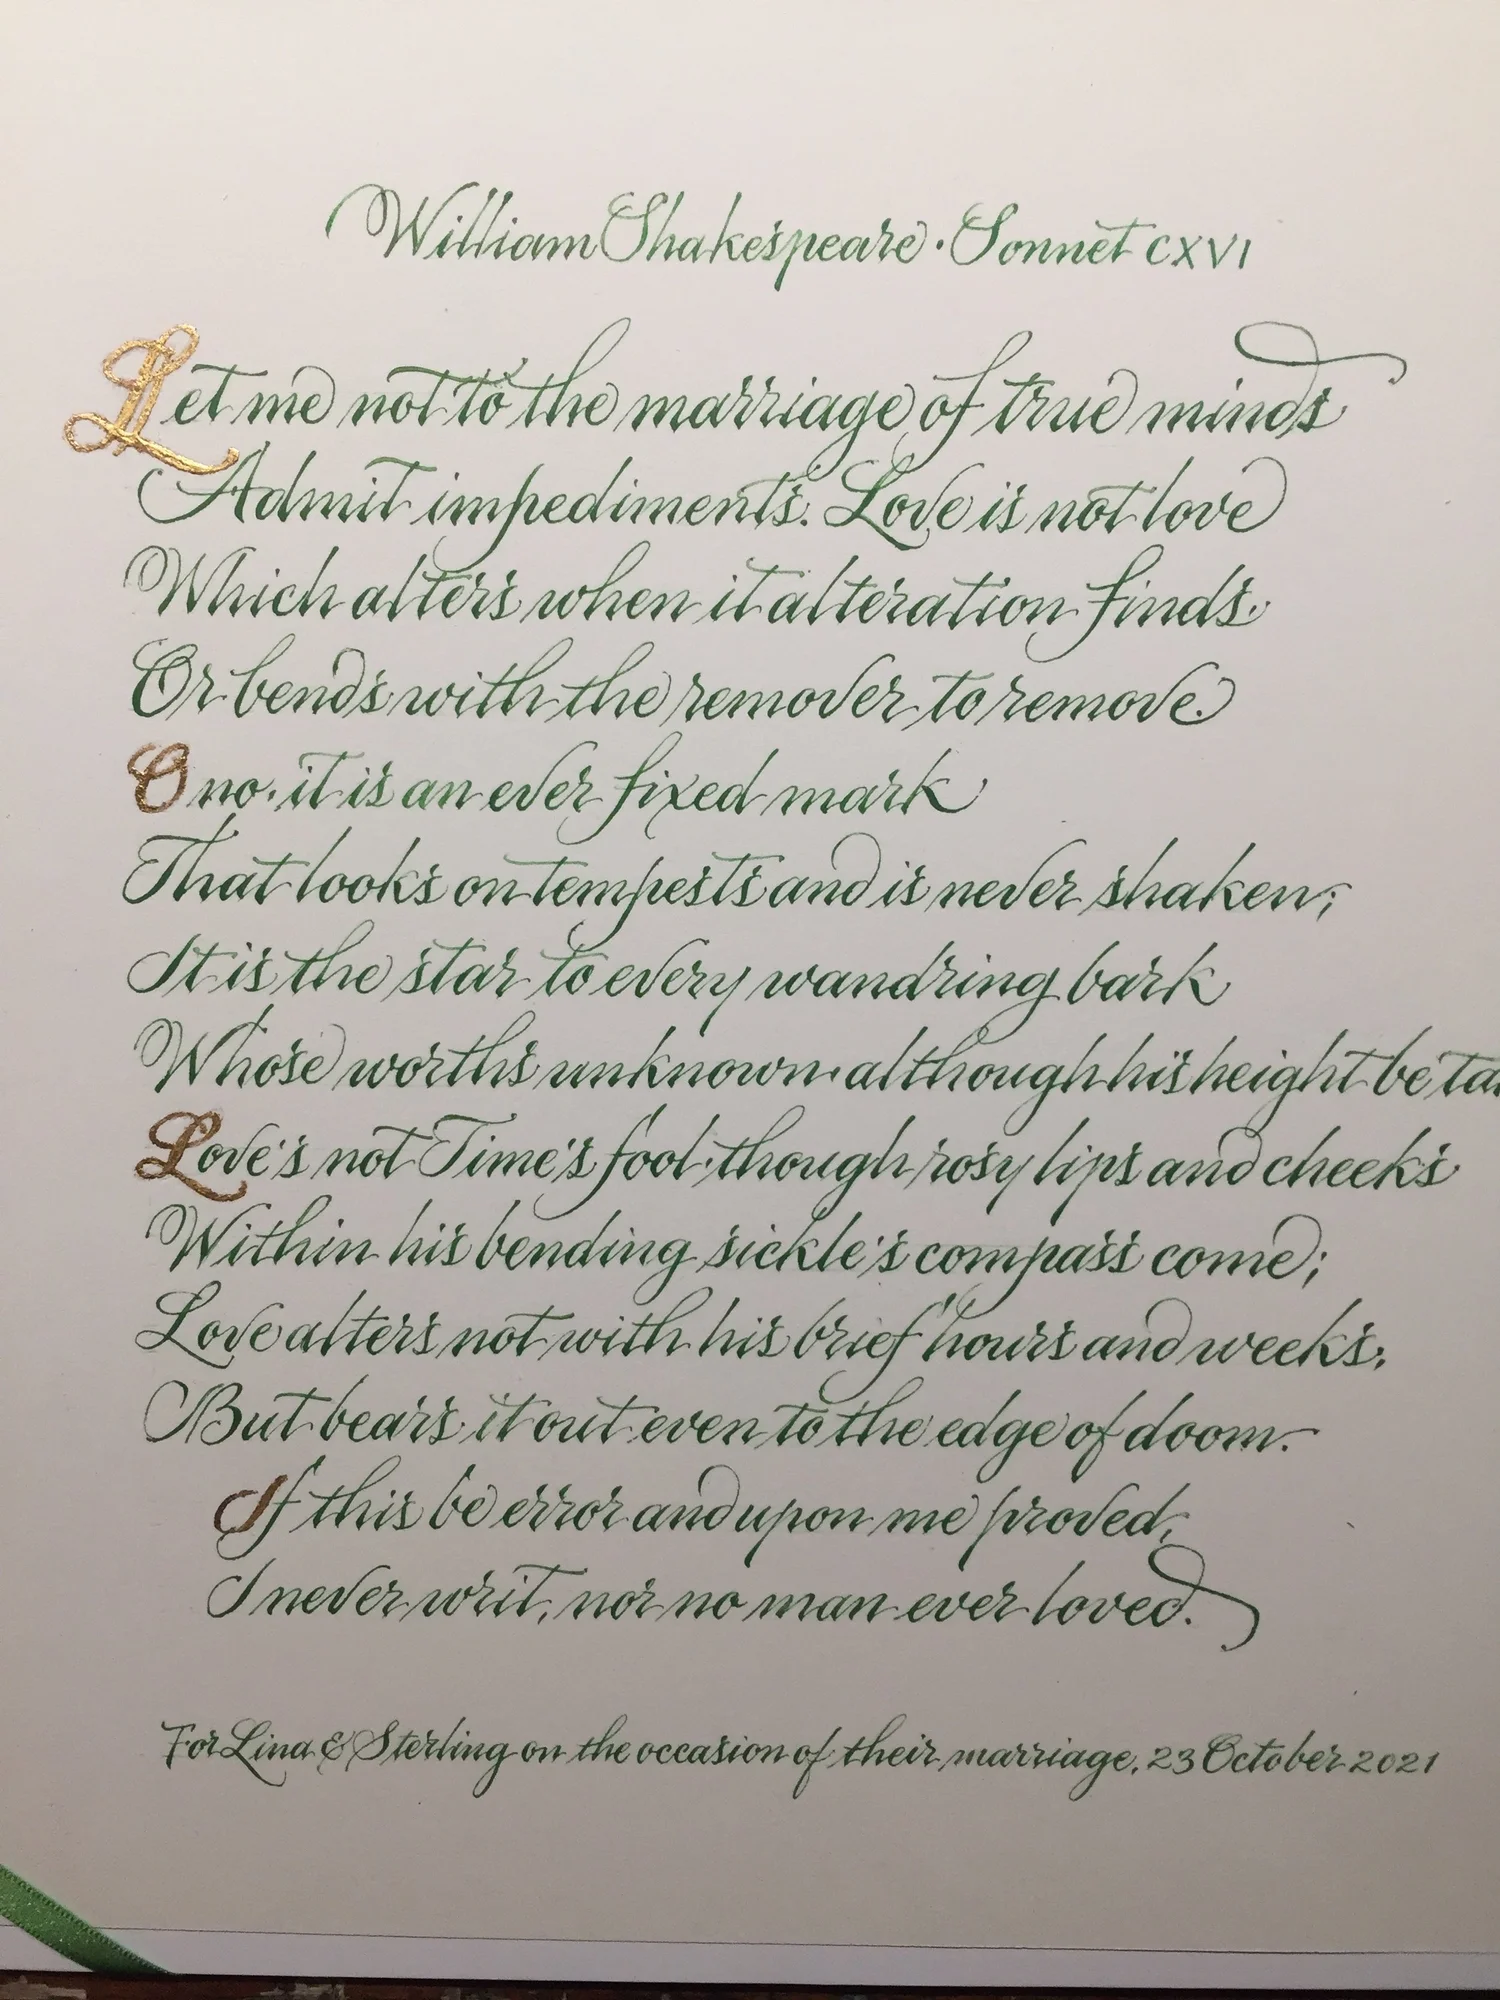 William Shakespeare · Sonnet CXVI
Let me not to the marriage of true minds
Admit impediments. Love is not love
Which alters when it alteration finds,
Or bends with the remover to remove.
O no, it is an ever fixed mark
That looks on tempests and is never shaken;
It is the star to every wandring bark
Whose worths unknown, although his height be ta
Love's not Time's fool, though rosy lips and cheeks
Within his bending sickle's compass come;
Love alters not with his brief hours and weeks,
But bears it out even to the edge of doom.
If this be error and upon me proved,
I never writ, nor no man ever loved.
For Lina & Sterling on the occasion of their marriage, 23 October 2021